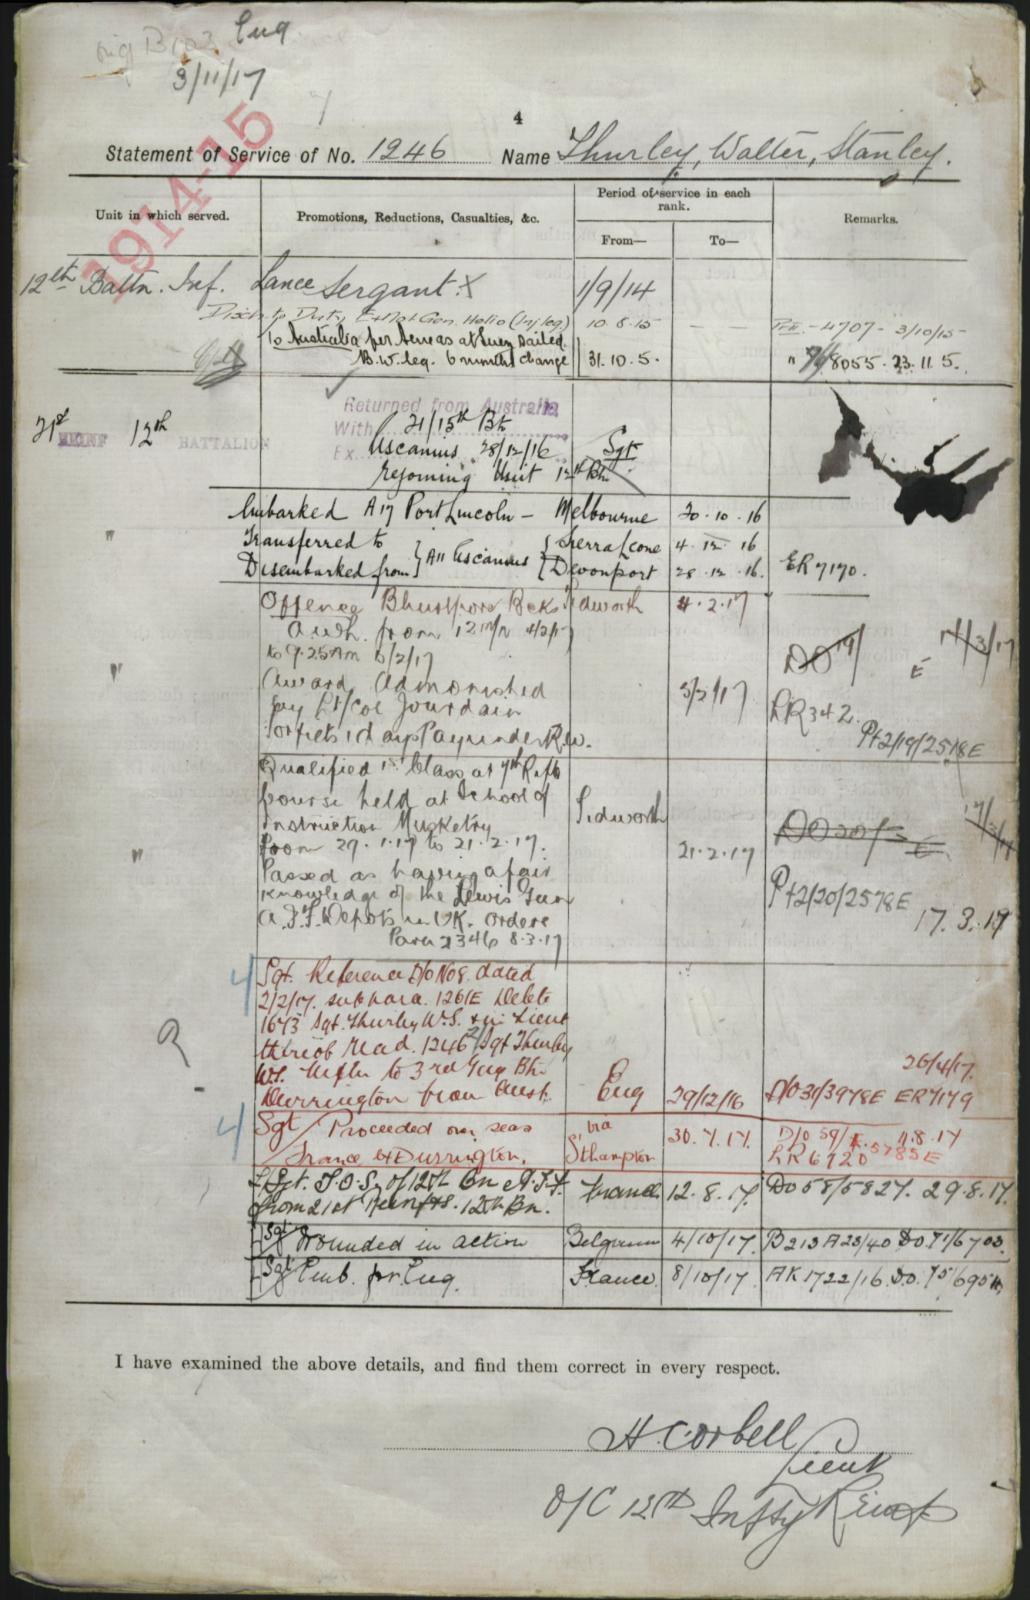 Eng
3/11/17
4
1914-15
Statement of Service of No. 1246 Name Thurley, Walter, Stanley.
Unit in which served.
Promotions, Reductions, Casualties, &c.
Period of service in each rank.
From—
To—
Remarks.
12th Battn. Inf. Lance Sergant X 1/9/14
Disch to Duty, Gen. Helio (Inj leg) 10.8.15 — — 4707 - 3/10/15
To Australia per Aeneas at Suez sailed.
B.W. leg. 6 months change 31.10.5. " 8055. 23.11.5.
Returned from Australia
With 21/15th Bn
21st 12th BATTALION
Ex Ascanius 28/12/16 Sgt
Rejoining Unit 12th Bn
Embarked A17 Port Lincoln — Melbourne 20.10.16
Transferred to } A11 Ascanius { Sierra Leone 4.12.16
Disembarked from } { Devonport 28.12.16. ER 7170.
" Offence Bhurtpore Bcks Tidworth 4.2.17
from 12 4/2/17
to 9.25 AM 5/2/17 DO 14/3/17 E
" Award Admonished 5/2/17
by Lt/Col Jourdain LR 342
forfeits 1 days Pay under R.W. Pt2/19/2578E
Qualified 1st Class at 7th Rifle
Course held at School of Tidworth
Instruction Musketry DO 20/ E 17/3/17
" from 29.1.17 to 21.2.17. 21.2.17
Passed as having a fair
knowledge of the Lewis Gun Pt2/20/2578E
A.I.F. Depots in UK. Orders 17.3.17
Para 2346 8.3.17
4 Sgt. Reference D/O No 8. dated
2/2/17. sub para. 1261E Delete
1673 Sgt. Thurley W.S. & in lieu
thereof read. 1246 Sgt Thurley
WS. to 3rd Bn 26/4/17.
Durrington from Aust. Eng 29/12/16 D/O 31/3978E ER 7179
4 Sgt Proceeded over seas via 30.7.17. D/O 59/5785E 11.8.17
France ex Durrington. S'thampton LR 6720
L/Sgt. T.O.S. of 12th Bn A.I.F. France 12.8.17. DO 58/5827. 29.8.17.
from 21st Reinfts. 12th Bn.
Sgt Wounded in action Belgium 4/10/17. B213 A23/40 DO. 71/6703.
Sgt Emb. for Eng. France. 8/10/17. AK1722/16. D.O. 75/6954
I have examined the above details, and find them correct in every respect.
H. Corbell
Lieut
O/C 12th Inftry Reinf